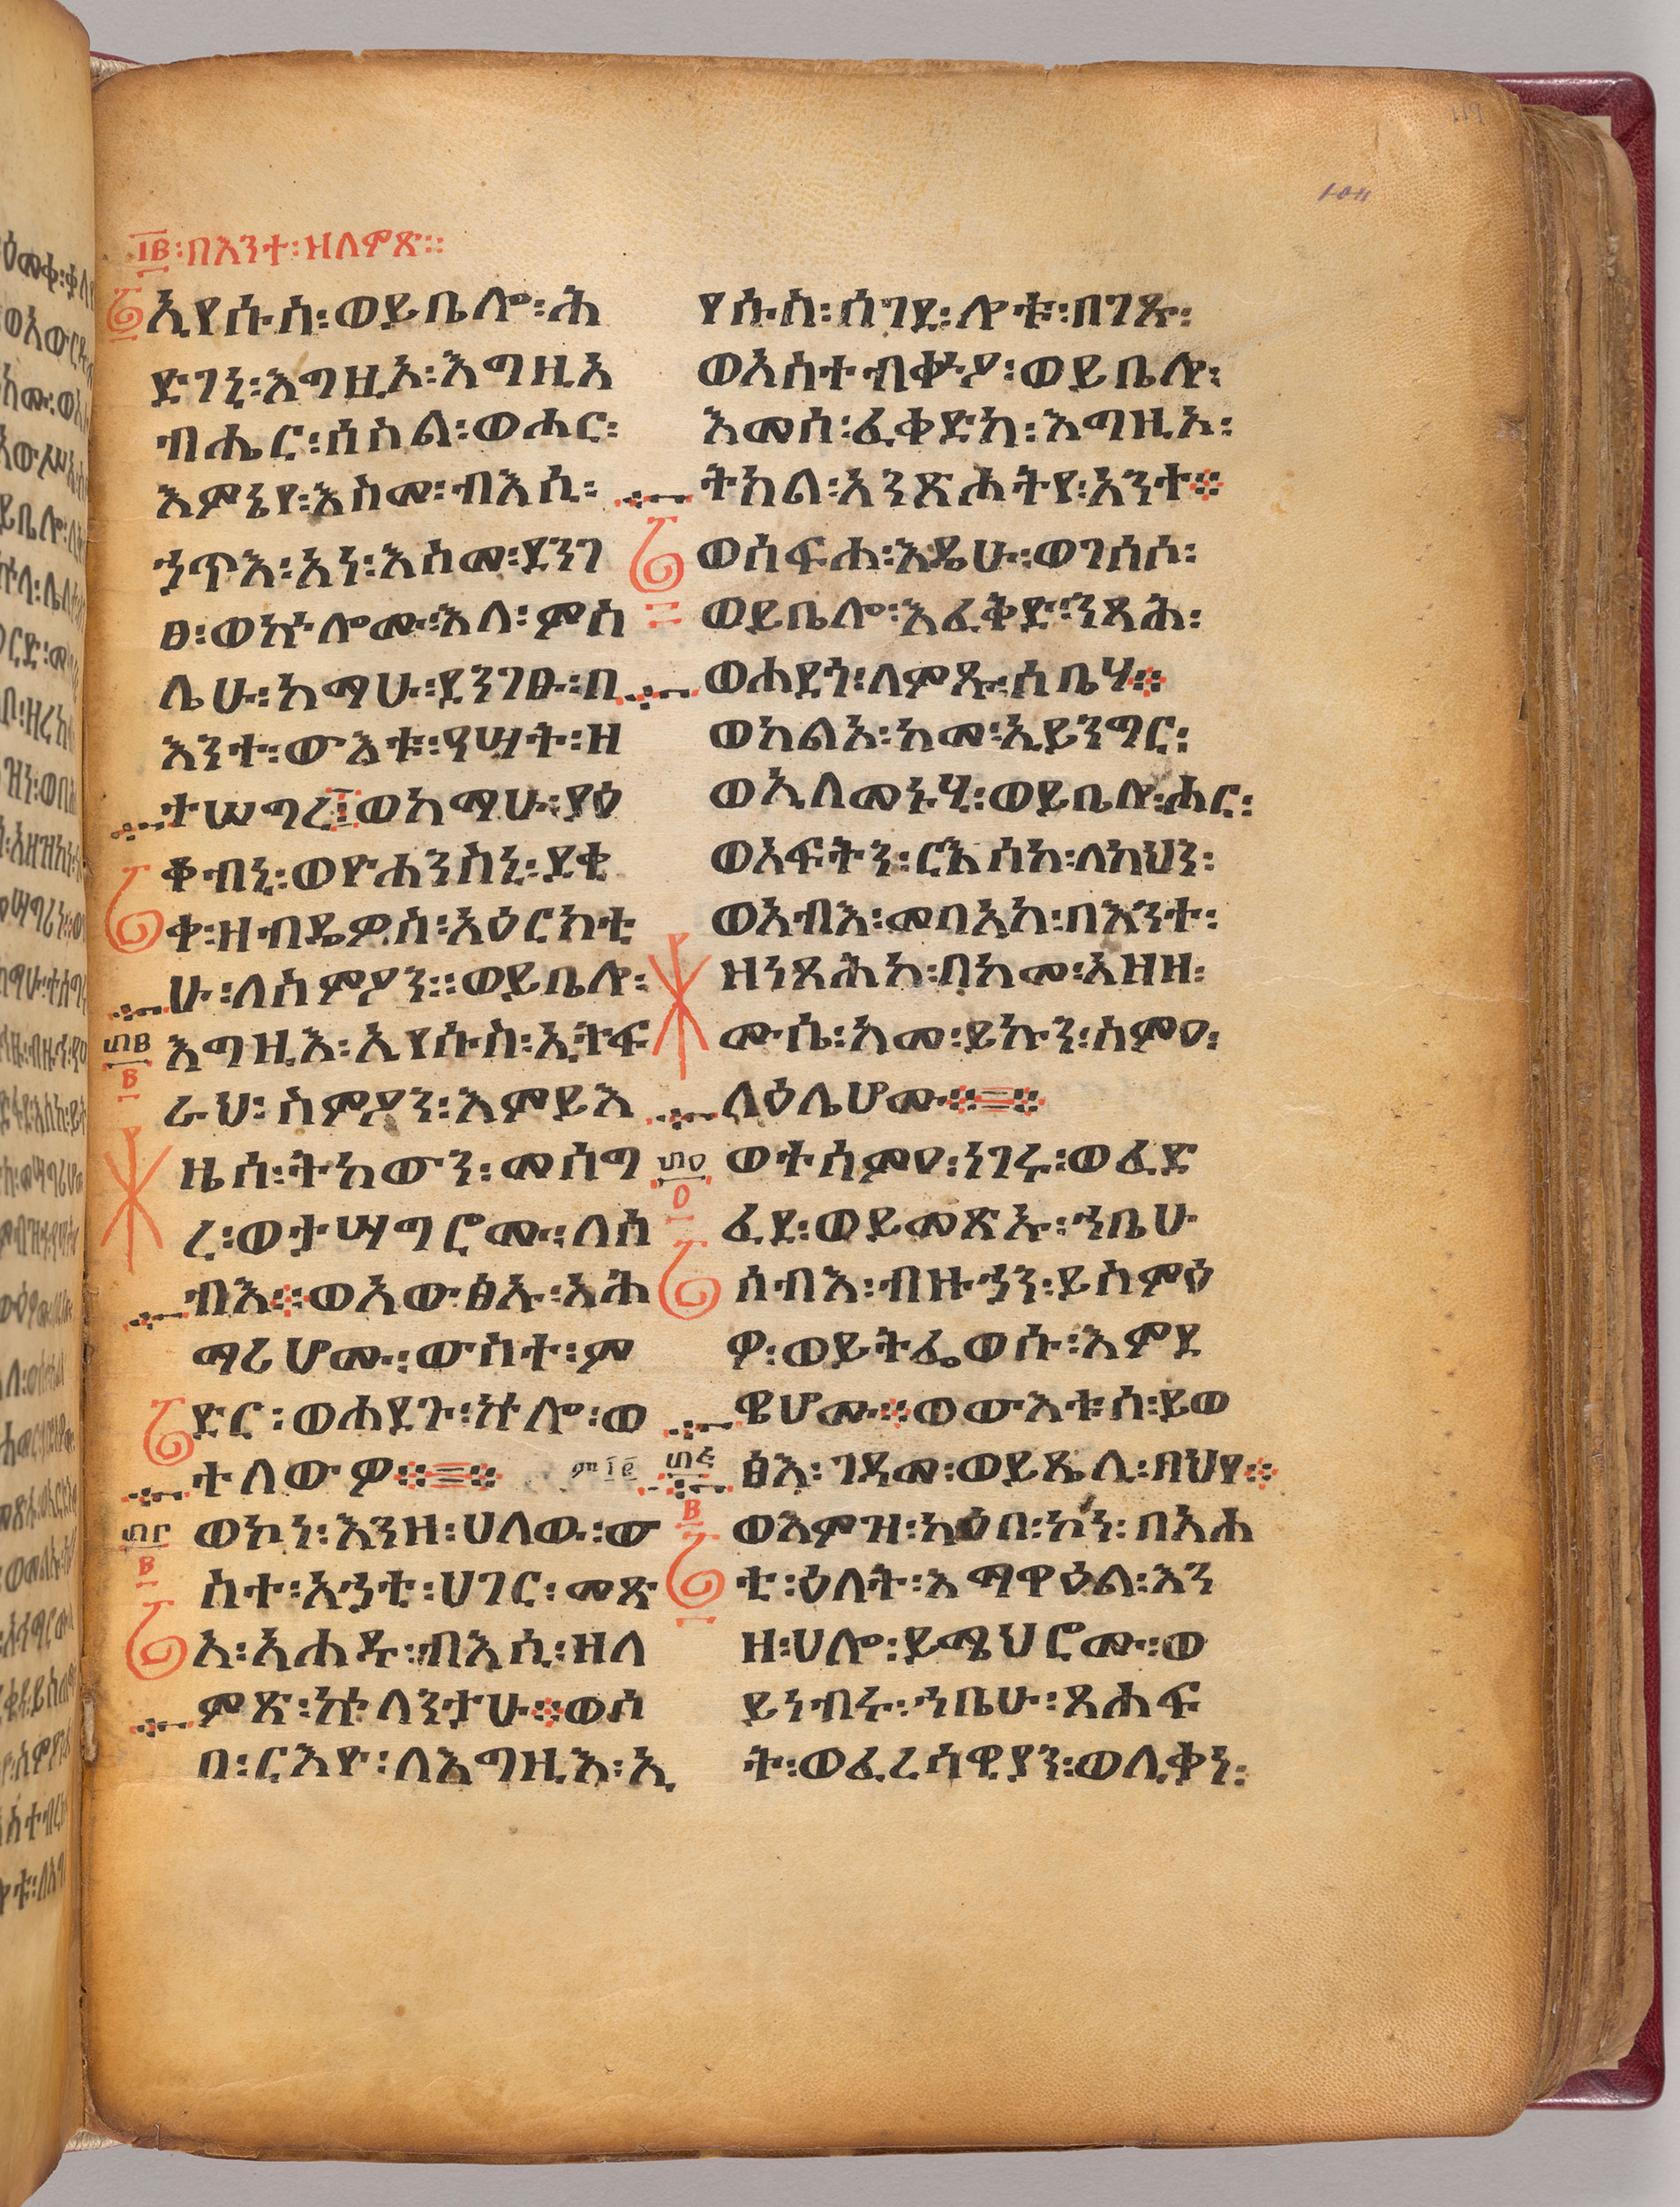 ፲፪፡በእንተ፡ዘለምጽ፡፡
ኢየሱስ፡ወይቤሎ፡ሕ
ድገኒ፡እግዚኦ፡እግዚአ
ብሔር፡ሰስል፡ወሐር፡
እምኔየ፡እስመ፡ብእሲ፡
ኃጥእ፡አነ፡እስመ፡ደንገ
ፀ፡ወኵሎሙ፡እለ፡ምስ
ሌሁ፡ከማሁ፡ደንገፁ፡በ
እንተ፡ውእቱ፡ዓሣት፡ዘ
ተሠግረ፤ወከማሁ፡ያዕ
ቆብኒ፡ወዮሐንስኒ፡ደቂ
ቀ፡ዘብዴዎስ፡አዕርክቲ
ሁ፡ለስምዖን፡፡ወይቤሎ፡
እግዚእ፡ኢየሱስ፡ኢትፍ
ራህ፡ስምዖን፡እምይእ
ዜሰ፡ትከውን፡መሰግ
ረ፡ወታሣግሮሙ፡ለሰ
ብእ፨ወአውፅኡ፡አሕ
ማሪሆሙ፡ውስተ፡ም
ድር፡ወሐደጉ፡ኵሎ፡ወ
ተለውዎ፨፨ ም፲፭
ወኮነ፡እንዘ፡ሀለዉ፡ው
ስተ፡አኃቲ፡ሀገር፡መጽ
አ፡አሐዱ፡ብእሲ፡ዘለ
ምጽ፡ኵለንታሁ፨ወሶ
በ፡ርእዮ፡ለእግዚእ፡ኢ
የሱስ፡ሰገደ፡ሎቱ፡በገጹ፡
ወአስተብቍዖ፡ወይቤሎ፡
እመሰ፡ፈቀድከ፡እግዚኦ፡
ትክል፡አንጽሖትየ፡አንተ፨
ወሰፍሐ፡እዴሁ፡ወገሰሶ፡
ወይቤሎ፡እፈቅድ፡ንጻሕ፡
ወሐደጎ፡ለምጹ፡ሶቤሃ፨
ወከልኦ፡ከመ፡ኢይንግር፡
ወኢለመኑሂ፡ወይቤሎ፡ሑር፡
ወአፍትን፡ርእሰከ፡ለካህን፡
ወአብእ፡መባአከ፡በእንተ፡
ዘነጻሕከ፡በከመ፡አዘዘ፡
ሙሴ፡ከመ፡ይኩን፡ስምዐ፡
ላዕሌሆሙ፨፨
ወተሰምዐ፡ነገሩ፡ወፈድ
ፈደ፡ወይመጽኡ፡ኀቤሁ
ሰብእ፡ብዙኃን፡ይስምዕ
ዎ፡ወይትፌወሱ፡እምደ
ዌሆሙ፨ወውእቱሰ፡ይወ
ፅእ፡ገዳመ፡ወይጼሊ፡በህየ፨
ወእምዝ፡ካዕበ፡ኮነ፡በአሐ
ቲ፡ዕለት፡እማዋዕል፡እን
ዘ፡ሀሎ፡ይሜህሮሙ፡ወ
ይነብሩ፡ኀቤሁ፡ጸሐፍ
ት፡ወፈሪሳዊያን፡ወሊቅነ፡